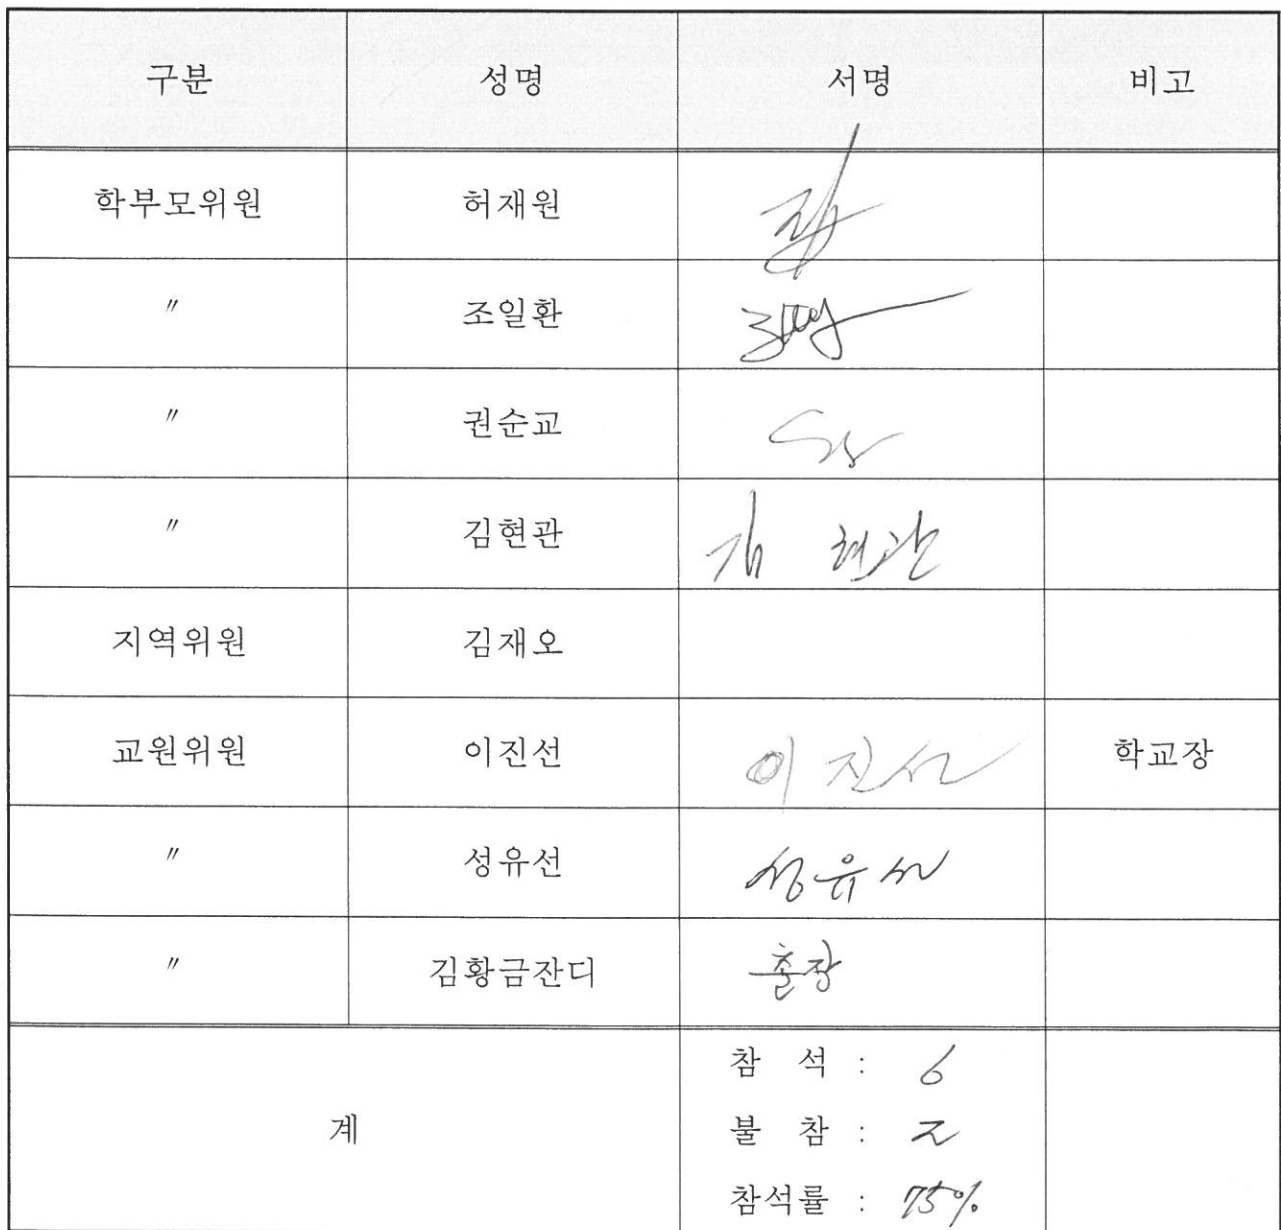 구분 성명 서명 비고
학부모위원 허재원
〃 조일환
〃 권순교
〃 김현관 김현관
지역위원 김재오
교원위원 이진선 이진선 학교장
〃 성유선 성유선
〃 김황금잔디 출장
계
참 석 : 6
불 참 : 2
참석률 : 75%